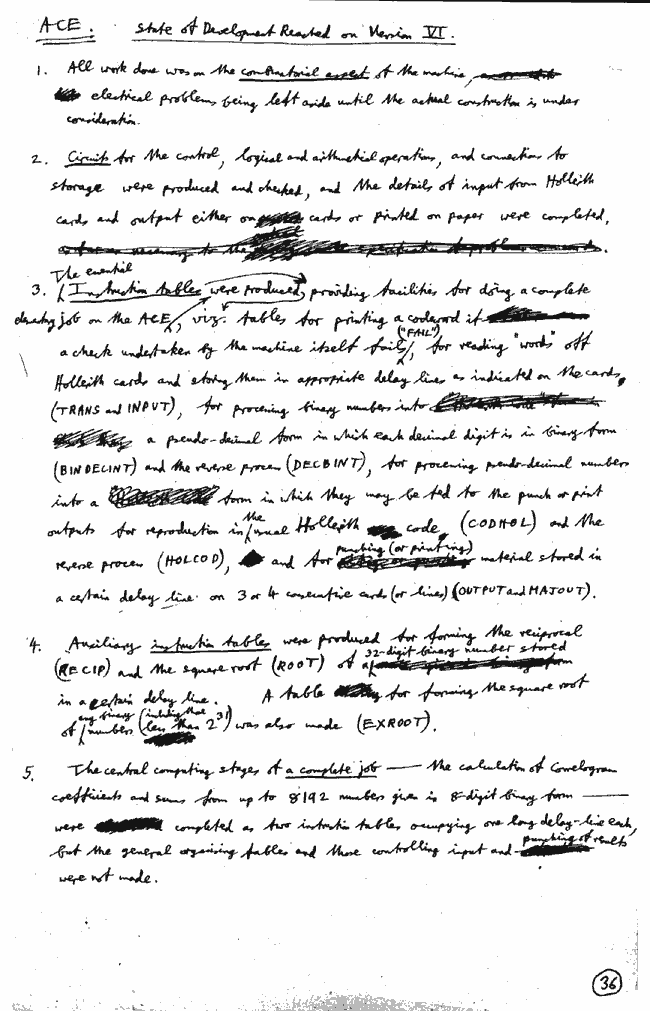 ACE. State of Development Reached on Version VI.
1. All work done was on the combinatorial aspect of the machine,
electrical problems being left aside until the actual construction is under
consideration.
2. Circuits for the control, logical and arithmetical operations, and connections to
storage were produced and checked, and the details of input from Hollerith
cards and output either on cards or printed on paper were completed,
The essential
3. Instruction tables were produced, providing facilities for doing a complete
job on the ACE, viz. tables for printing a codeword if
("FAIL")
a check undertaken by the machine itself fails, for reading "words" off
Hollerith cards and storing them in appropriate delay lines as indicated on the cards,
(TRANS and INPUT), for processing binary numbers into
a pseudo-decimal form in which each decimal digit is in binary form
(BINDECINT) and the reverse process (DECBINT), for processing pseudo-decimal numbers
into a form in which they may be fed to the punch or print
outputs for reproduction in the usual Hollerith code, (CODHOL) and the
punching (or printing)
reverse process (HOLCOD), and for material stored in
a certain delay line on 3 or 4 consecutive cards (or lines) (OUTPUT and MAJOUT).
4. Auxiliary instruction tables were produced for forming the reciprocal
32-digit binary number stored
(RECIP) and the square root (ROOT) of a
in a certain delay line. A table for forming the square root
any binary (including that
of numbers less than 2^31) was also made (EXROOT).
5. The central computing stages of a complete job — the calculation of Correlogram
coefficients and sums from up to 8192 numbers given in 8-digit binary form —
were completed as two instruction tables occupying one long delay-line each,
but the general organising tables and those controlling input and punching of results
were not made.
36